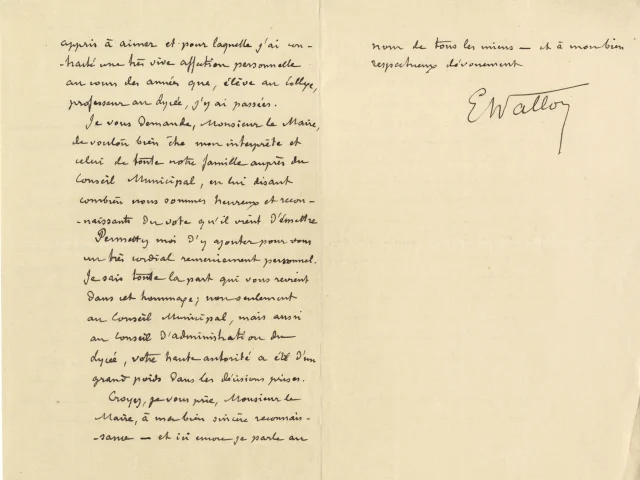 appris à aimer et pour laquelle j'ai con-
-tracté une très vive affection personnelle
au cours des années que, élève au Collège,
professeur au Lycée, j'y ai passées.
Je vous demande, Monsieur le Maire,
de vouloir bien être mon interprète et
celui de toute notre famille auprès du
Conseil Municipal, en lui disant
combien nous sommes heureux et recon-
-naissants du vote qu'il vient d'émettre
Permettez moi d'y ajouter pour vous
un très cordial remerciement personnel.
Je sais toute la part qui vous revient
dans cet hommage; non seulement
au Conseil Municipal, mais aussi
au Conseil d'administration du
Lycée, votre haute autorité a été d'un
grand poids dans les décisions prises.
Croyez, je vous prie, Monsieur le
Maire, à ma bien sincère reconnais-
-sance — et ici encore je parle au
nom de tous les miens — et à mon bien
respectueux dévouement
EWallon